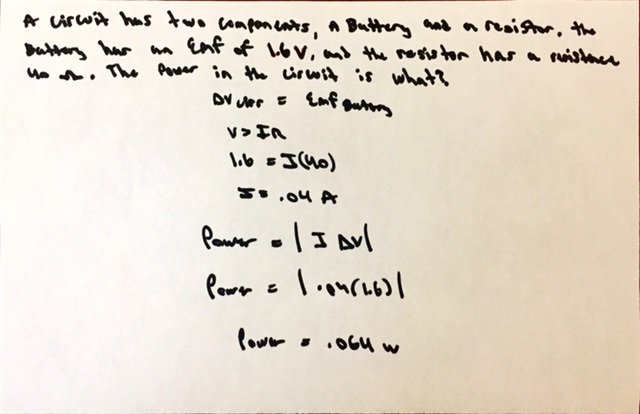 A circuit has two components, A Battery and a resistor, the
Battery has an Emf of 1.6 V, and the resistor has a resistance
40 Ω. The Power in the circuit is what?
ΔV = Emf Battery
V = IR
1.6 = I(40)
I = .04 A
Power = | I ΔV|
Power = | .04(1.6)|
Power = .064 W